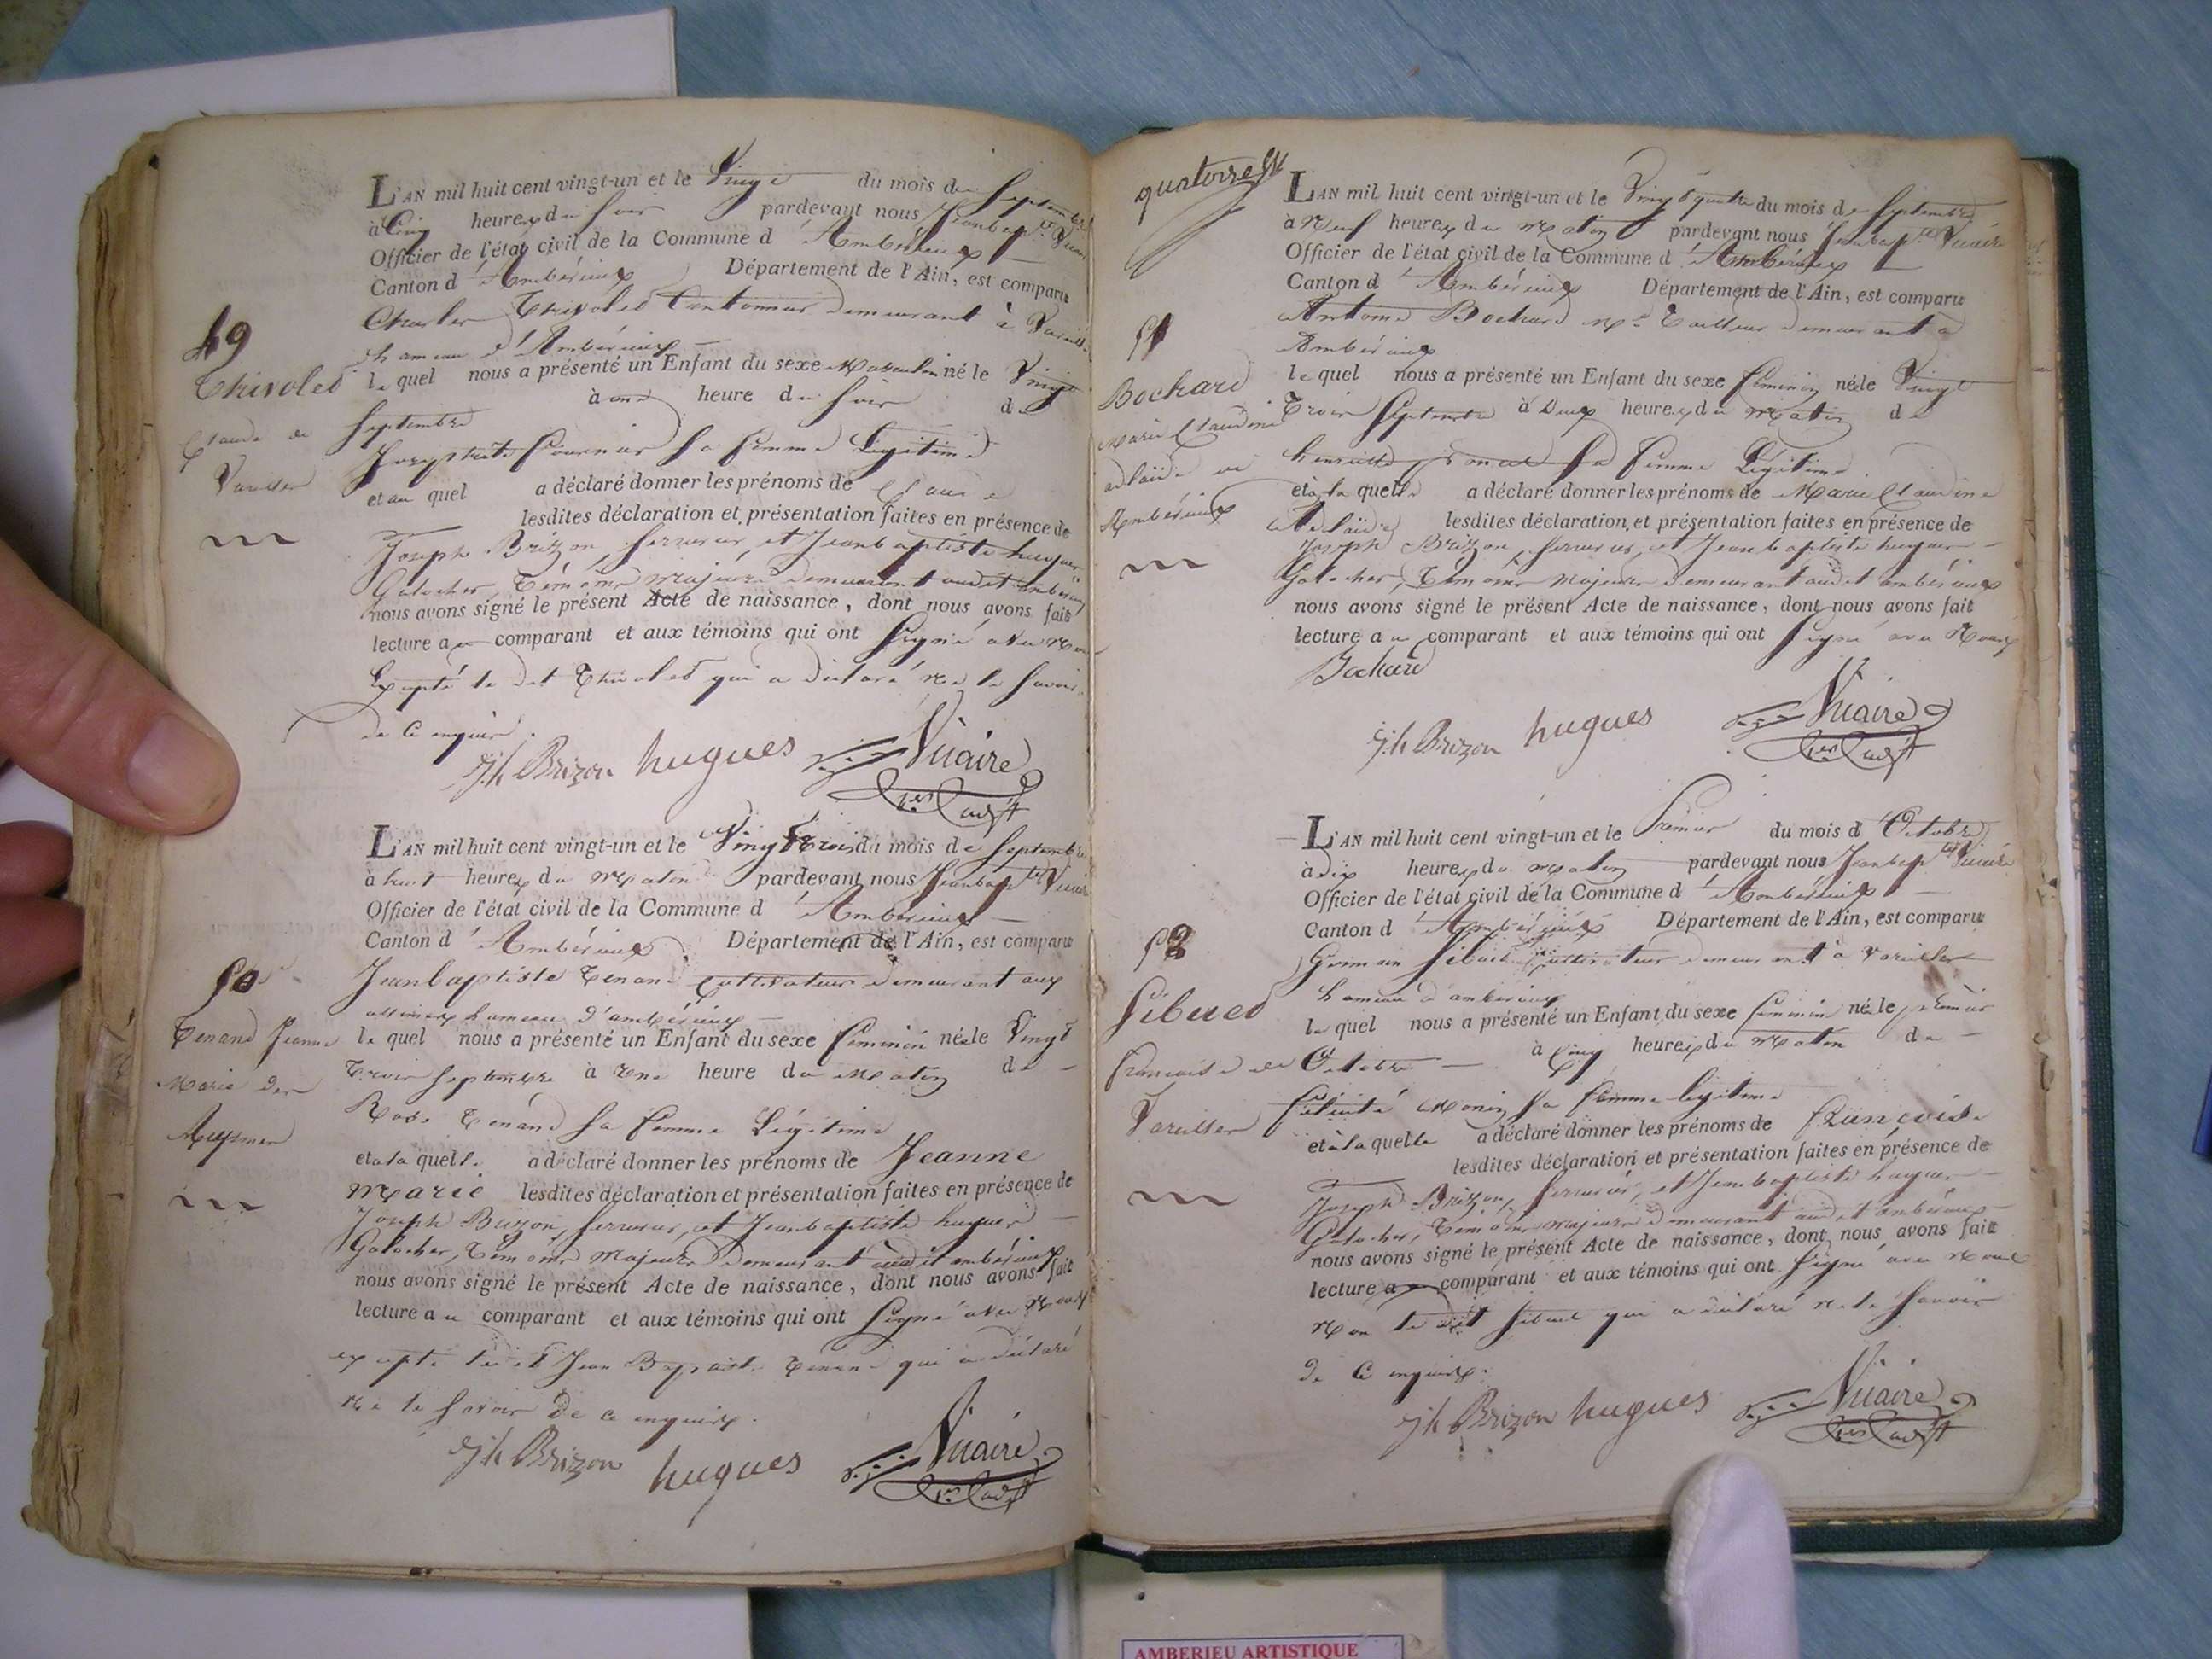 L'AN mil huit cent vingt-un et le Vingt du mois de Septembre
à Cinq heures du Soir pardevant nous Jeanbapte Vuaire
Officier de l'état civil de la Commune d'Ambérieux
Canton d'Ambérieux Département de l'Ain, est comparu
Charles Thivolet Cantonnier demeurant à Vareilles
hameau d'Ambérieux
49
Thivolet
Claude de
Vareilles
le quel nous a présenté un Enfant du sexe Masculin né le Vingt
Septembre à une heure du Soir de
Josephte Fournier Sa femme Légitime
et au quel a déclaré donner les prénoms de Claude
lesdites déclaration et présentation faites en présence de
Joseph Brizon, Serrurier, et Jeanbaptiste hugues
Galocher, Témoins Majeurs demeurant audit ambérieux
nous avons signé le présent Acte de naissance, dont nous avons fait
lecture au comparant et aux témoins qui ont Signé avec Nous
Excepté le dit Thivolet qui a déclaré ne le Savoir
de ce enquis.
Jh Brizon hugues Vuaire
L'AN mil huit cent vingt-un et le Vingt Trois du mois de Septembre
à huit heures du Matin pardevant nous Jeanbapte Vuaire
Officier de l'état civil de la Commune d'Ambérieux
Canton d'Ambérieux Département de l'Ain, est comparu
Jeanbaptiste Tenand Cultivateur demeurant aux
hameau d'ambérieux
50
Tenand Jeanne
Marie des
le quel nous a présenté un Enfant du sexe féminin née le Vingt
Trois Septembre à Une heure du Matin de
Rose Tenand Sa femme Légitime
et à la quelle a déclaré donner les prénoms de Jeanne
Marie lesdites déclaration et présentation faites en présence de
Joseph Brizon, Serrurier, et Jeanbaptiste hugues
Galocher, Témoins Majeurs demeurant audit ambérieux
nous avons signé le présent Acte de naissance, dont nous avons fait
lecture au comparant et aux témoins qui ont Signé avec Nous
excepté ledit Jean Baptiste Tenand qui a déclaré
ne le Savoir de ce enquis.
Jh Brizon hugues Vuaire
quatorze
L'AN mil huit cent vingt-un et le Vingt quatre du mois de Septembre
à Neuf heures du Matin pardevant nous Jeanbapte Vuaire
Officier de l'état civil de la Commune d'Ambérieux
Canton d'Ambérieux Département de l'Ain, est comparu
Antoine Bochard Md Tailleur demeurant à
Ambérieux
51
Bochard
Marie Claudine
adlaïde de
Ambérieux
le quel nous a présenté un Enfant du sexe féminin née le Vingt
Trois Septembre à Deux heures du Matin de
henriette Sa femme Légitime
et à la quelle a déclaré donner les prénoms de Marie Claudine
Adelaïde lesdites déclaration et présentation faites en présence de
Joseph Brizon, Serrurier, et Jeanbaptiste hugues
Galocher, Témoins majeurs demeurant audit ambérieux
nous avons signé le présent Acte de naissance, dont nous avons fait
lecture au comparant et aux témoins qui ont Signé avec Nous
Bochard
Jh Brizon hugues Vuaire
L'AN mil huit cent vingt-un et le Premier du mois d'Octobre
à dix heures du Matin pardevant nous Jeanbapte Vuaire
Officier de l'état civil de la Commune d'Ambérieux
Canton d'Ambérieux Département de l'Ain, est comparu
Germain Sibuet Cultivateur demeurant à Vareilles
hameau d'ambérieux
52
Sibuet
francoise de
Vareilles
le quel nous a présenté un Enfant du sexe féminin née le premier
Octobre à Cinq heures du Matin de
félicité Monin Sa femme légitime
et à la quelle a déclaré donner les prénoms de francoise
lesdites déclaration et présentation faites en présence de
Joseph Brizon, Serrurier, et Jeanbaptiste hugues
Galocher, Témoins majeurs demeurant audit ambérieux
nous avons signé le présent Acte de naissance, dont nous avons fait
lecture au comparant et aux témoins qui ont Signé avec Nous
Non le dit Sibuet qui a déclaré ne le Savoir
de ce enquis.
Jh Brizon hugues Vuaire
AMBERIEU ARTISTIQUE